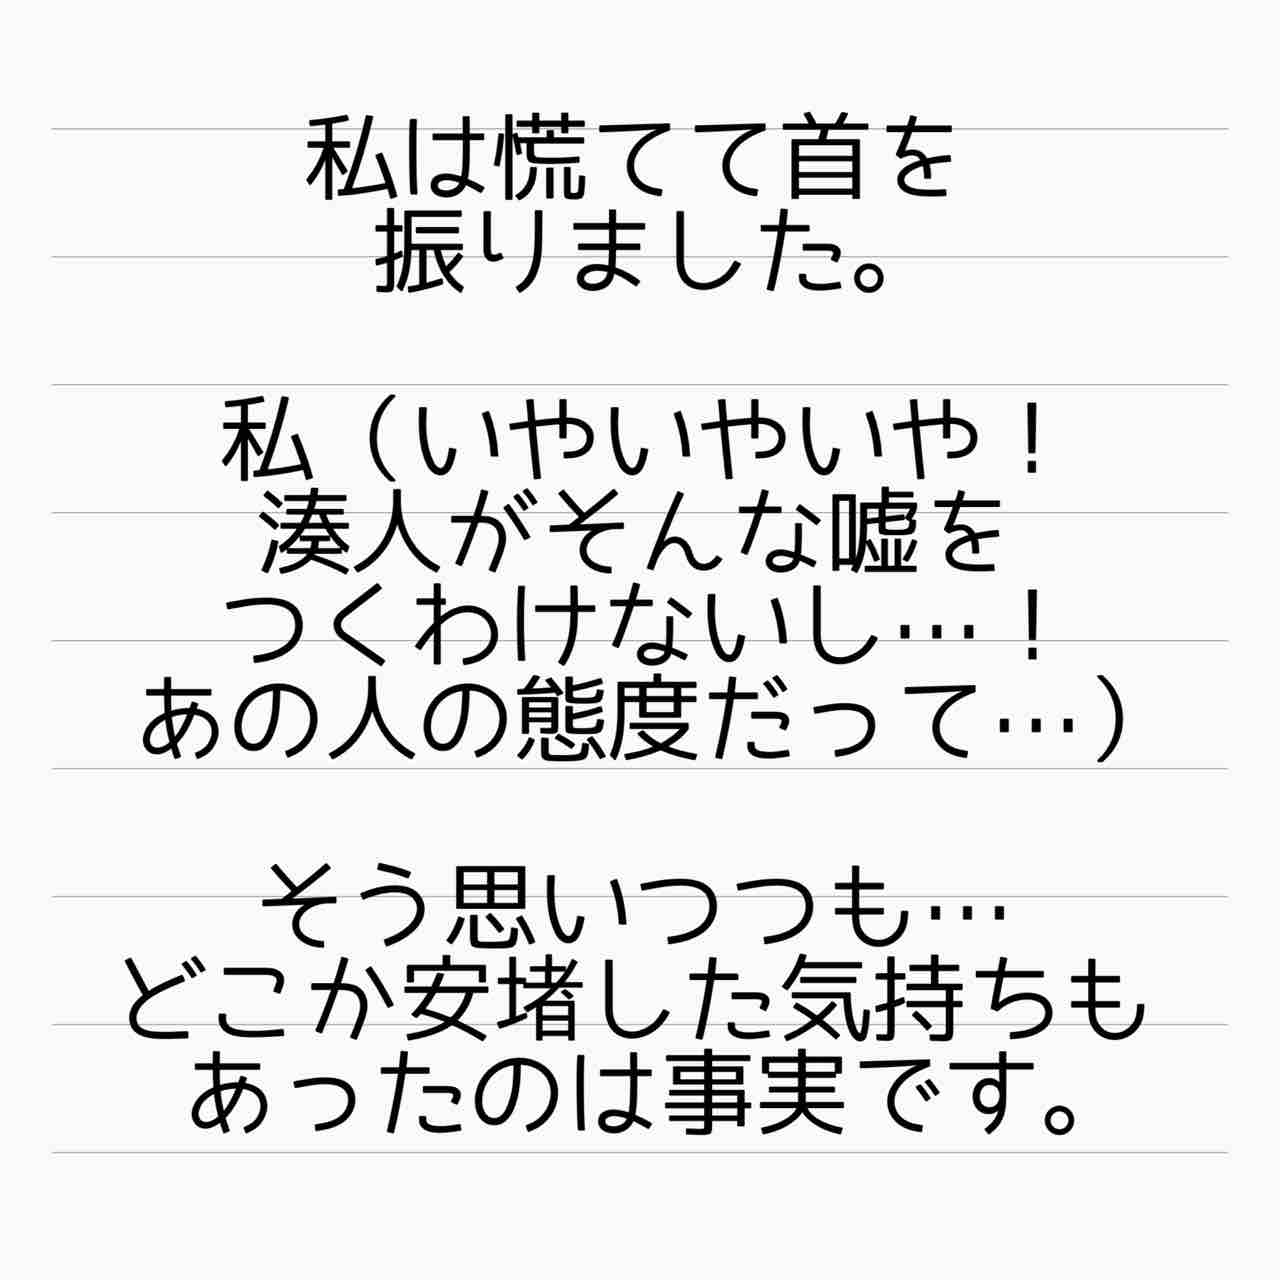 私は慌てて首を
振りました。
私（いやいやいや！
湊人がそんな嘘を
つくわけないし…！
あの人の態度だって…）
そう思いつつも…
どこか安堵した気持ちも
あったのは事実です。